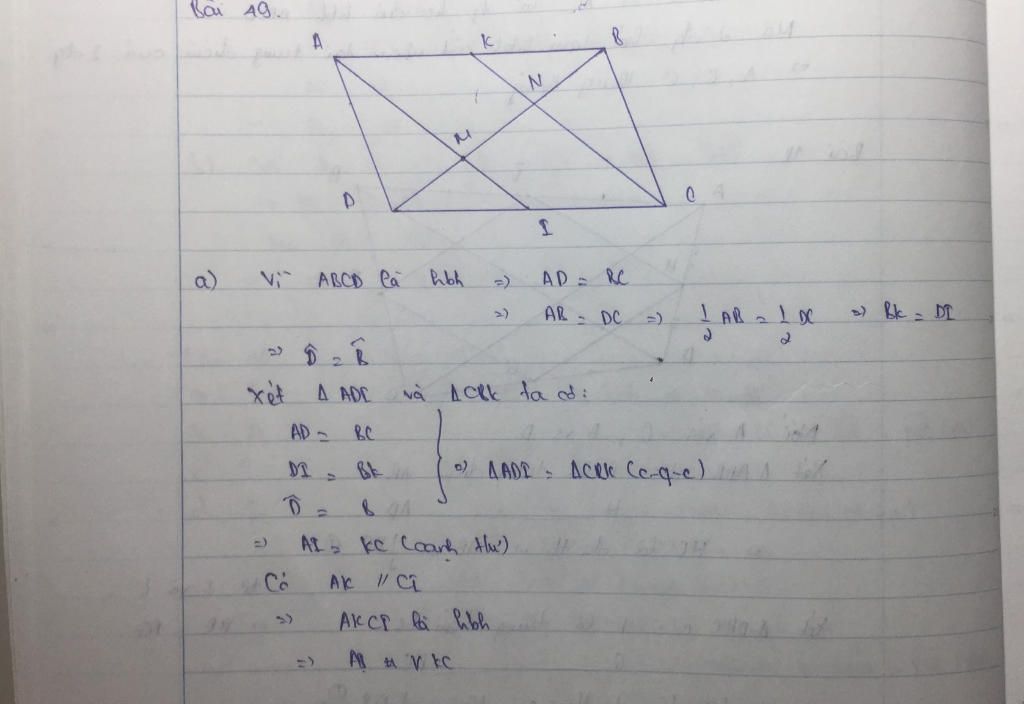 Bài 49.
A K B
N
M
D C
I
a) Vì ABCD là hbh => AD = BC
=> AB = DC => 1/2 AB = 1/2 DC => BK = DI
=> D̂ = B̂
Xét Δ ADI và ΔCBK ta có:
AD = BC
DI = BK => ΔADI = ΔCBK (c-g-c)
D̂ = B
=> AI = KC (cạnh t/ư)
Có AK // CI
=> AKCI là hbh
=> KC